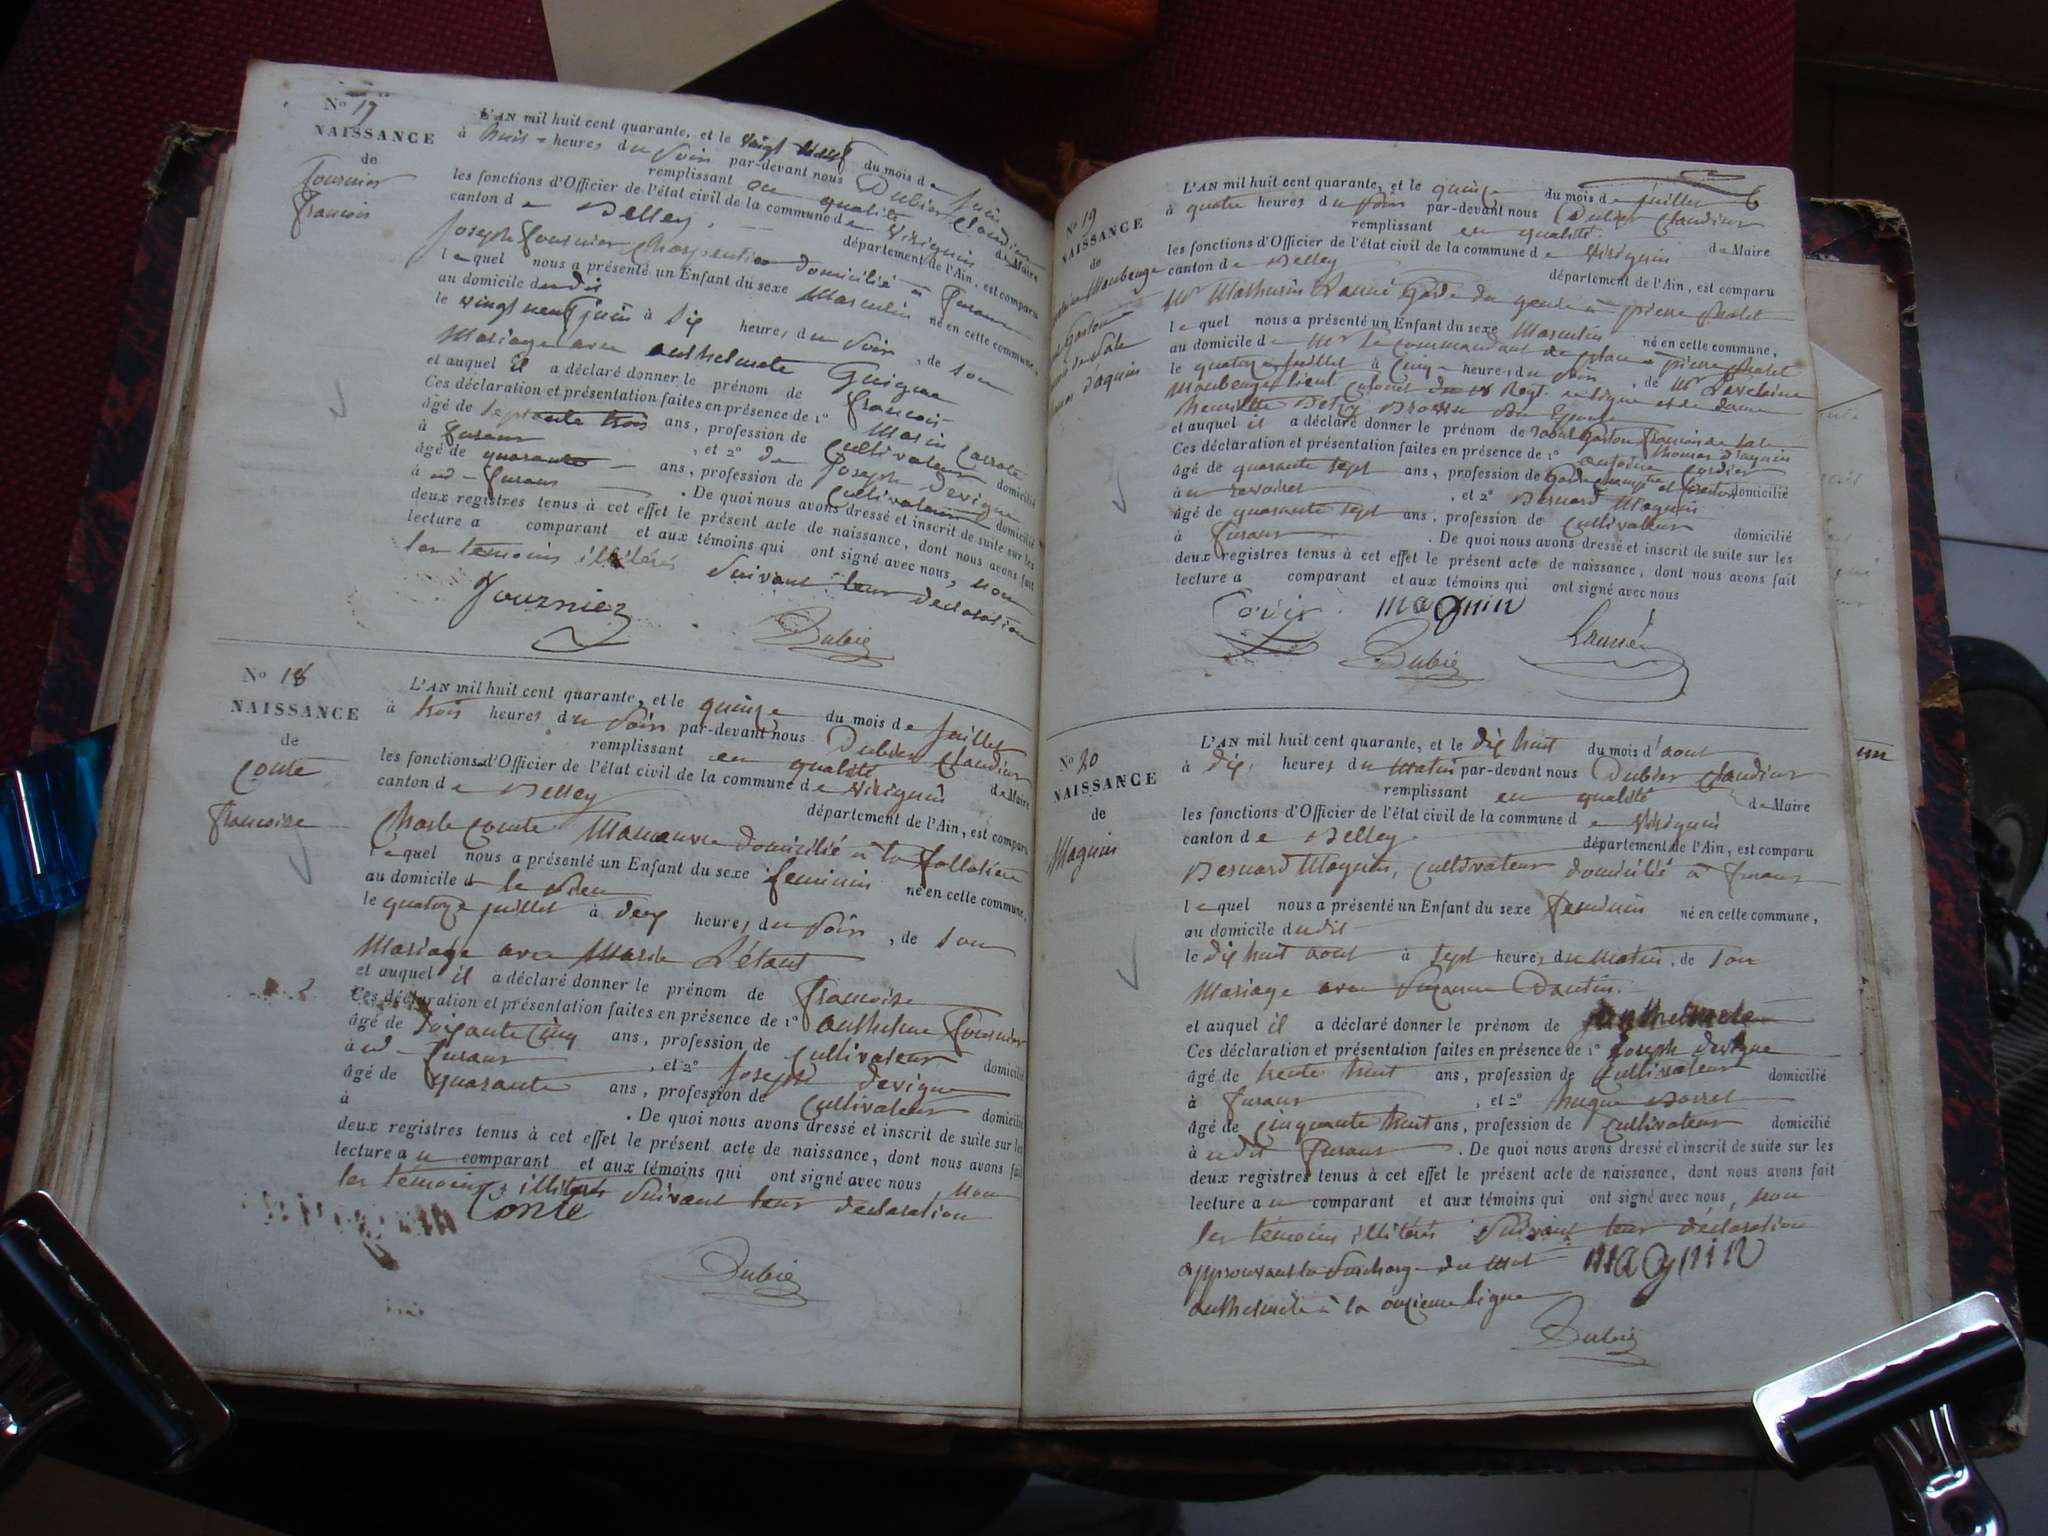 No 17
NAISSANCE
de
Fournier
François
L'AN mil huit cent quarante, et le vingt neuf du mois de juin
à huit heures du soir par-devant nous Dubier Claudius
remplissant en qualité de Maire
les fonctions d'Officier de l'état civil de la commune de Virignin
canton de Belley département de l'Ain, est comparu
Joseph Fournier Charpentier domicilié à furans
lequel nous a présenté un Enfant du sexe Masculin né en cette commune,
au domicile dudit
le vingt neuf juin à dix heures du soir, de son
Mariage avec anthelmete Guigue
et auquel il a déclaré donner le prénom de françois
Ces déclaration et présentation faites en présence de 1° Marin
âgé de septante trois ans, profession de Cultivateur domicilié
à furans, et 2° de Joseph Devigne
âgé de quarante ans, profession de Cultivateur domicilié
à ud furans. De quoi nous avons dressé et inscrit de suite sur les
deux registres tenus à cet effet le présent acte de naissance, dont nous avons fait
lecture a comparant et aux témoins qui ont signé avec nous, non
les témoins illitérés suivant leur declaration
Fournier
Dubier
No 18
NAISSANCE
de
Conte
francoise
L'AN mil huit cent quarante, et le quinze du mois de juillet
à trois heures du soir par-devant nous Dubier Claudius
remplissant en qualité de Maire
les fonctions d'Officier de l'état civil de la commune de Virignin
canton de Belley département de l'Ain, est comparu
Charle Conte Manœuvre domicilié à la
lequel nous a présenté un Enfant du sexe feminin né en cette commune,
au domicile d
le quatorze juillet à deux heures du soir, de son
Mariage avec Marie Létant
et auquel il a déclaré donner le prénom de francoise
Ces déclaration et présentation faites en présence de 1° anthelme Fournier
âgé de soixante cinq ans, profession de Cultivateur domicilié
à ud furans, et 2° Joseph Devigne
âgé de quarante ans, profession de Cultivateur domicilié
à . De quoi nous avons dressé et inscrit de suite sur les
deux registres tenus à cet effet le présent acte de naissance, dont nous avons fait
lecture a u comparant et aux témoins qui ont signé avec nous, non
les témoins illitérés suivant leur declaration
Conte
Dubier
No 19
NAISSANCE
de
Maubeuge
Gaston
de Sale
d'aquin
L'AN mil huit cent quarante, et le quinze du mois de juillet
à quatre heures du soir par-devant nous Dubier Claudius
remplissant en qualité de Maire
les fonctions d'Officier de l'état civil de la commune de Virignin
canton de Belley département de l'Ain, est comparu
Mr Mathurin Launé Garde du genie à pierre chatel
lequel nous a présenté un Enfant du sexe Masculin né en cette commune,
au domicile de Mr le commandant de place à pierre chatel
le quatorze juillet à cinq heures du soir, de Mr
Maubeuge lieut Colonel du Regt de ligne et de dame
henriette Betzy
et auquel il a déclaré donner le prénom de Gaston françois de Sale
thomas d'aquin
Ces déclaration et présentation faites en présence de 1° antoine
âgé de quarante sept ans, profession de Garde champetre domicilié
à u revoires, et 2° Bernard Magnin
âgé de quarante sept ans, profession de Cultivateur domicilié
à furans. De quoi nous avons dressé et inscrit de suite sur les
deux registres tenus à cet effet le présent acte de naissance, dont nous avons fait
lecture a comparant et aux témoins qui ont signé avec nous
magnin
Launé
Dubier
No 20
NAISSANCE
de
Magnin
L'AN mil huit cent quarante, et le dix huit du mois d'aout
à dix heures du matin par-devant nous Dubier Claudius
remplissant en qualité de Maire
les fonctions d'Officier de l'état civil de la commune de Virignin
canton de Belley département de l'Ain, est comparu
Bernard Magnin, Cultivateur domicilié à furans
lequel nous a présenté un Enfant du sexe feminin né en cette commune,
au domicile dudit
le dix huit aout à sept heures du matin, de son
Mariage avec Suzanne Dantin.
et auquel il a déclaré donner le prénom de anthelmete
Ces déclaration et présentation faites en présence de 1° Joseph Devigne
âgé de trente huit ans, profession de Cultivateur domicilié
à furans, et 2° hugue
âgé de cinquante huit ans, profession de Cultivateur domicilié
à udit furans. De quoi nous avons dressé et inscrit de suite sur les
deux registres tenus à cet effet le présent acte de naissance, dont nous avons fait
lecture a u comparant et aux témoins qui ont signé avec nous, non
les témoins illitérés suivant leur déclaration
approuvant la surcharge du mot magnin
anthelmete à la onzieme ligne
Dubier